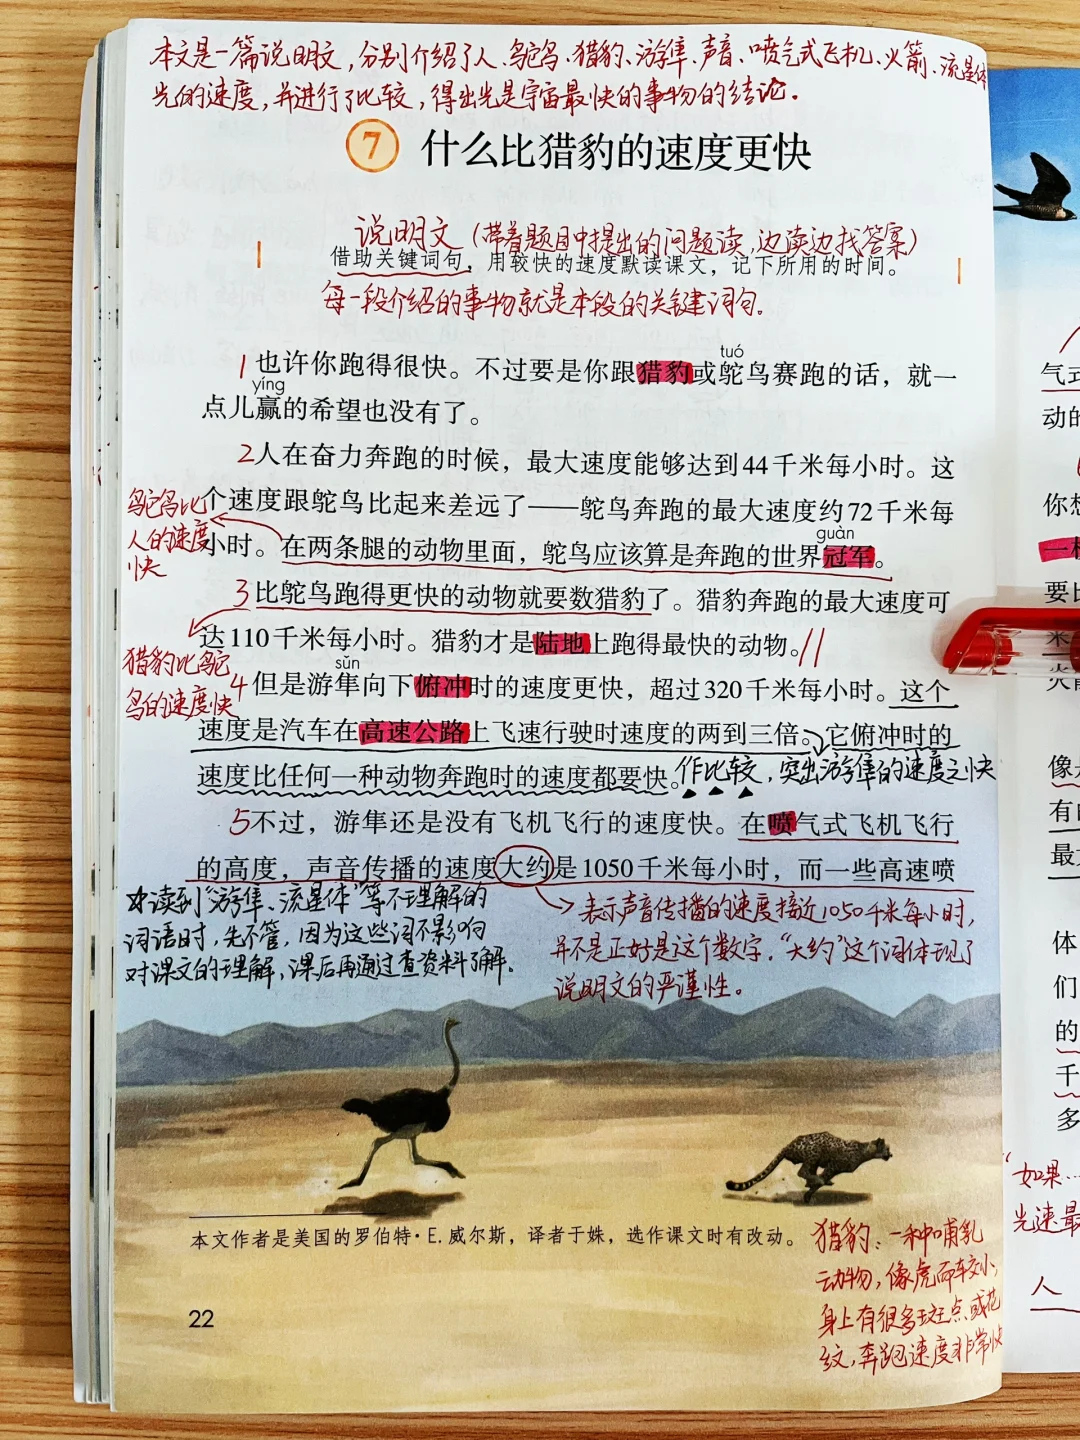 本文是一篇说明文，分别介绍了人、鸵鸟、猎豹、游隼、声音、喷气式飞机、火箭、流星体
光的速度，并进行了比较，得出光是宇宙最快的事物的结论。
7 什么比猎豹的速度更快
说明文（带着题目中提出的问题读，边读边找答案）
借助关键词句，用较快的速度默读课文，记下所用的时间。
每一段介绍的事物就是本段的关键词句。
tuó
1也许你跑得很快。不过要是你跟猎豹或鸵鸟赛跑的话，就一
yíng
点儿赢的希望也没有了。
2人在奋力奔跑的时候，最大速度能够达到44千米每小时。这
个速度跟鸵鸟比起来差远了——鸵鸟奔跑的最大速度约72千米每
guàn
小时。在两条腿的动物里面，鸵鸟应该算是奔跑的世界冠军。
鸵鸟比
人的速度
快
3比鸵鸟跑得更快的动物就要数猎豹了。猎豹奔跑的最大速度可
达110千米每小时。猎豹才是陆地上跑得最快的动物。
猎豹比鸵
鸟的速度快
sǔn
4但是游隼向下俯冲时的速度更快，超过320千米每小时。这个
速度是汽车在高速公路上飞速行驶时速度的两到三倍。它俯冲时的
速度比任何一种动物奔跑时的速度都要快。
作比较，突出游隼的速度之快
5不过，游隼还是没有飞机飞行的速度快。在喷气式飞机飞行
的高度，声音传播的速度大约是1050千米每小时，而一些高速喷
读到“游隼、流星体”等不理解的
词语时，先不管，因为这些词不影响
对课文的理解，课后再通过查资料了解。
表示声音传播的速度接近1050千米每小时，
并不是正好是这个数字。“大约”这个词体现了
说明文的严谨性。
本文作者是美国的罗伯特·E.威尔斯，译者于姝，选作课文时有改动。
猎豹：一种哺乳
动物，像虎而较小，
身上有很多斑点或花
纹，奔跑速度非常快
22
气式
动的
你想
一样
要比
火箭
像
有的
最大
体
们
的
千
多
“如果…
光速最
人